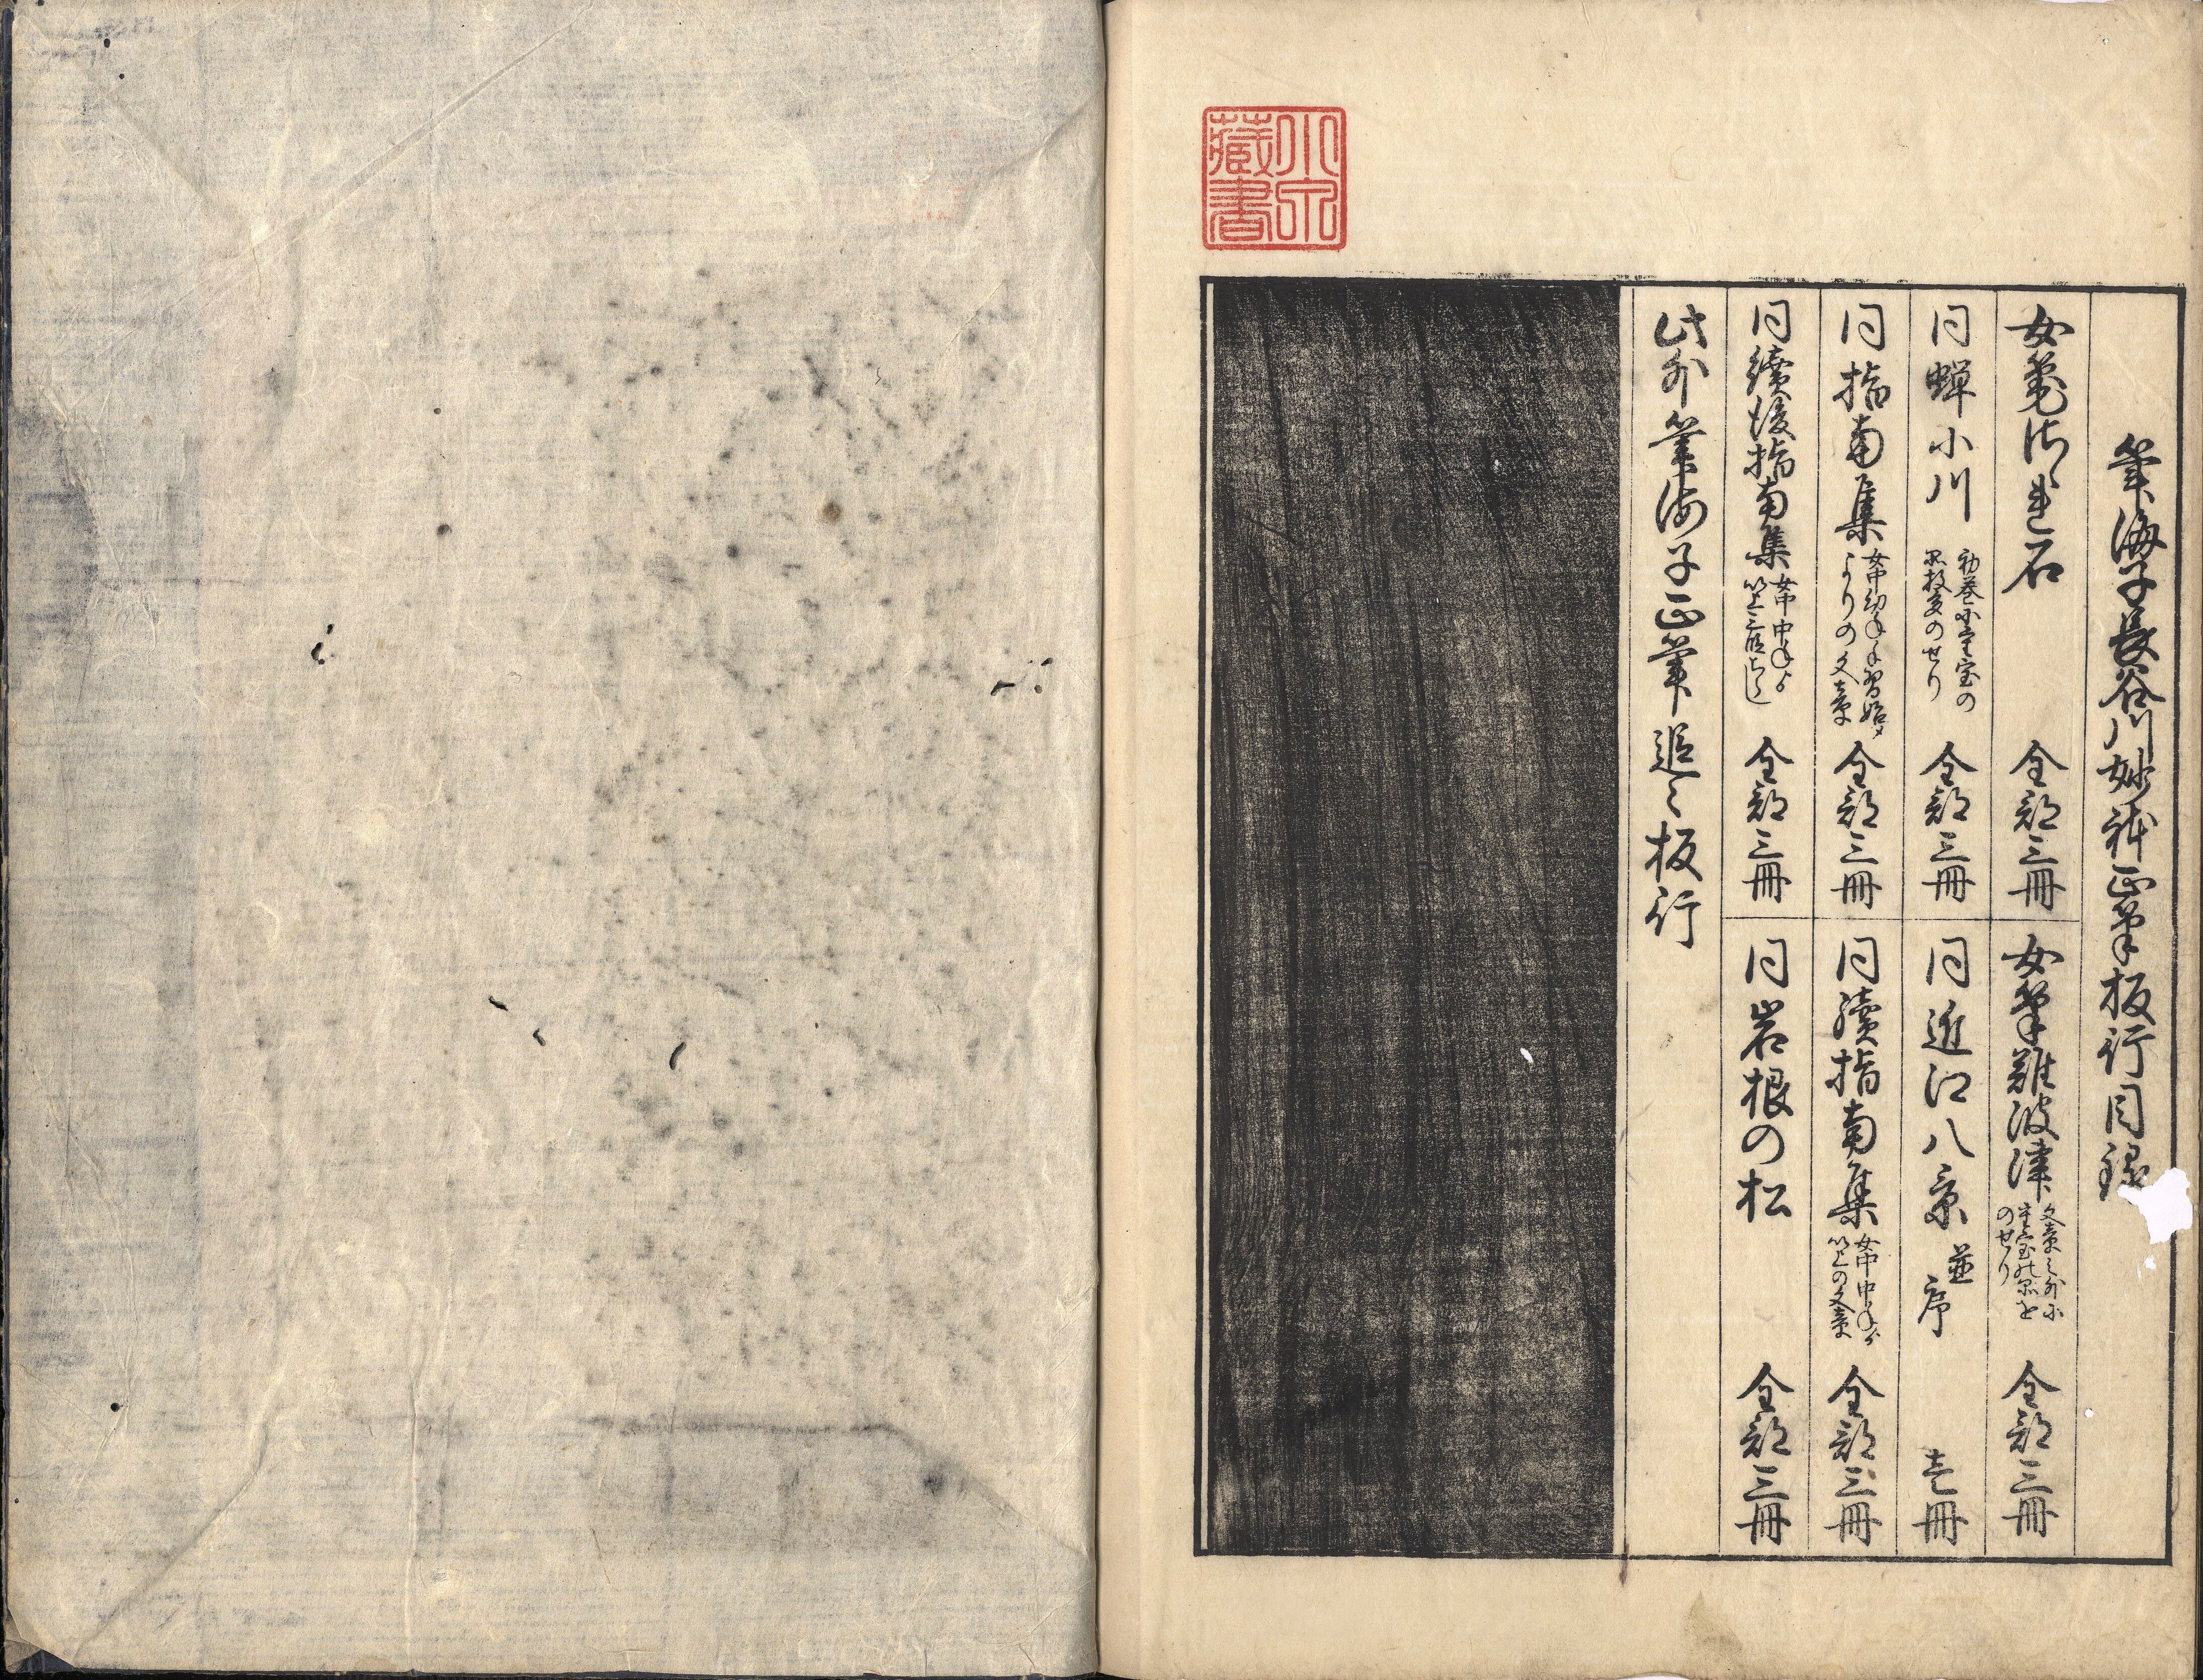 筆海子長谷川妙躰正筆板行目録
女筆さゝれ石
全部三冊
女筆難波津
文章之外に
重宝の品を
のせり
全部三冊
同蝉小川
初巻に重宝の
品数多のせり
全部三冊
同近江八景
並序
壱冊
同指南集
女中幼年手習始メ
よりの文章
全部三冊
同續指南集
女中中年ゟ
以上の文章
全部三冊
同續後指南集
女中中年ゟ
全部三冊
同岩根の松
全部三冊
此外筆海子正筆追々板行
小泉
藏書